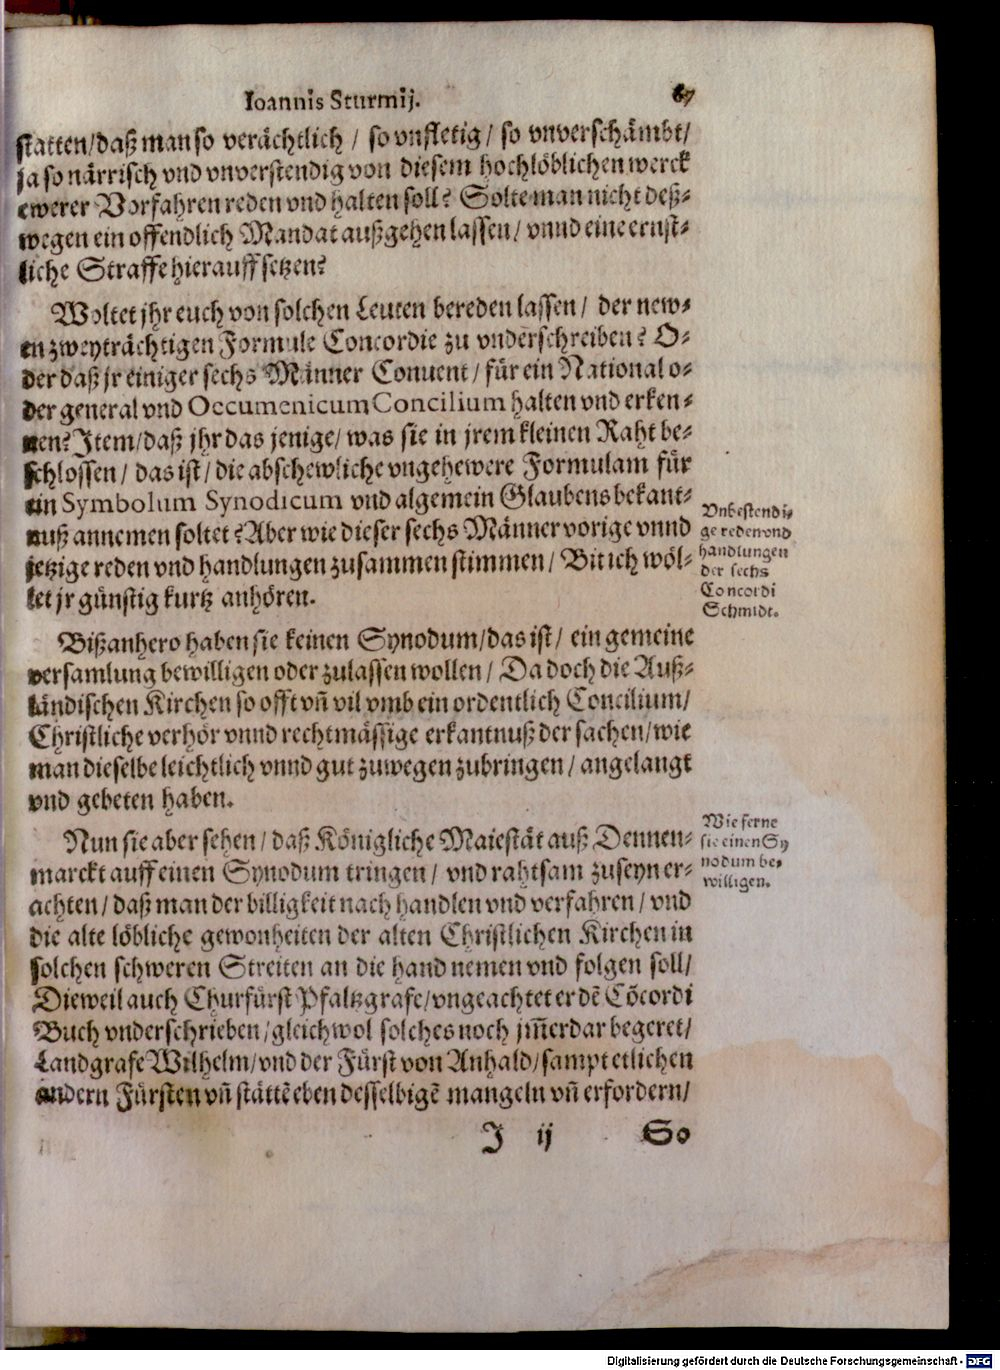 Ioannis Sturmij. 67
statten/daß man so verächtlich / so vnfletig / so vnverschämbt/
ja so närrisch vnd vnverstendig von diesem hochlöblichen werck
ewerer Vorfahren reden vnd halten soll? Solte man nicht deß-
wegen ein offendlich Mandat außgehen lassen / vnnd eine ernst-
liche Straffe hierauff setzen?
Woltet jhr euch von solchen Leuten bereden lassen / der new-
en zweyträchtigen Formule Concordie zu vnderschreiben? O-
der daß jr einiger sechs Männer Conuent / für ein National o-
der general vnd Oecumenicum Concilium halten vnd erken-
nen? Item/daß jhr das jenige/ was sie in jrem kleinen Raht be-
schlossen / das ist / die abschewliche vngehewere Formulam für
ein Symbolum Synodicum vnd algemein Glaubensbekant-
nuß annemen soltet? Aber wie dieser sechs Männer vorige vnnd
jetzige reden vnd handlungen zusammen stimmen / Bit ich wöl-
let jr günstig kurtz anhören.
Vnbestendi-
ge reden vnd
handlungen
der sechs
Concordi
Schmidt.
Bißanhero haben sie keinen Synodum/das ist / ein gemeine
versamlung bewilligen oder zulassen wollen / Da doch die Auß-
ländischen Kirchen so offt vn̄ vil vmb ein ordentlich Concilium/
Christliche verhör vnnd rechtmässige erkantnuß der sachen/wie
man dieselbe leichtlich vnnd gut zuwegen zubringen / angelangt
vnd gebeten haben.
Nun sie aber sehen / daß Königliche Maiestät auß Dennen-
marckt auff einen Synodum tringen / vnd rahtsam zuseyn er-
achten / daß man der billigkeit nach handlen vnd verfahren / vnd
die alte löbliche gewonheiten der alten Christlichen Kirchen in
solchen schweren Streiten an die hand nemen vnd folgen soll/
Dieweil auch Churfürst Pfaltzgrafe/vngeachtet er dē Cōcordi
Buch vnderschrieben / gleichwol solches noch jm̄erdar begeret/
Landgrafe Wilhelm/vnd der Fürst von Anhald/sampt etlichen
andern Fürsten vn̄ stättē eben desselbigē mangeln vn̄ erfordern/
Wie ferne
sie einen Sy
nodum be-
willigen.
J ij So
Digitalisierung gefördert durch die Deutsche Forschungsgemeinschaft - DFG